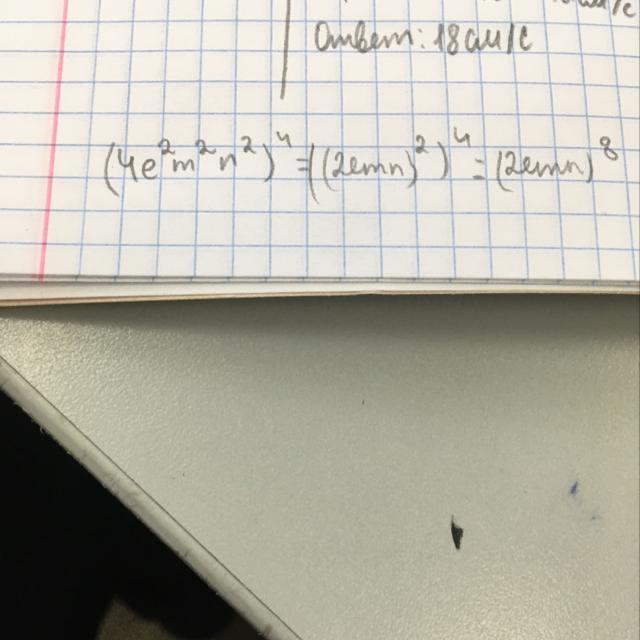 Ответ: 18 см/с
(4e²m²n²)⁴ = ((2emn)²)⁴ = (2emn)⁸